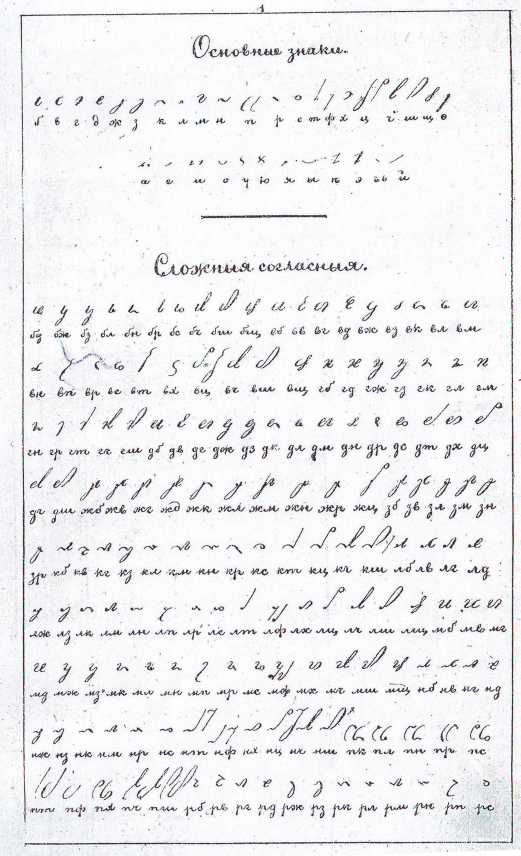 1
Основные знаки.
б в г д ж з к л м н п р с т ф х ц ч ш щ ѳ
а е и о у ю я ы ѣ э ь й
Сложныя согласныя.
бд бж бз бл бн бр бс бч бш бщ вб вв вг вд вж вз вк вл вм
вн вп вр вс вт вх вц вч вш вщ гб гд гж гз гк гл гм
гн гр гт гч гш дб дв дг дж дз дк дл дм дн др дс дт дх дц
дч дш жб жв жг жд жк жл жм жн жр жц зб зв зл зм зн
зр кб кв кг кз кл км кн кр кс кт кц кч кш лб лв лг лд
лж лз лк лм лн лп лр лс лт лф лх лц лч лш лщ мб мв мг
мд мж мз мк мл мн мп мр мс мф мх мч мш мщ нб нв нг нд
нж нз нк нм нр нс нт нф нх нц нч нш пк пл пн пр пс
пт пф пх пч пш рб рв рг рд рж рз рк рл рм рн рп рс